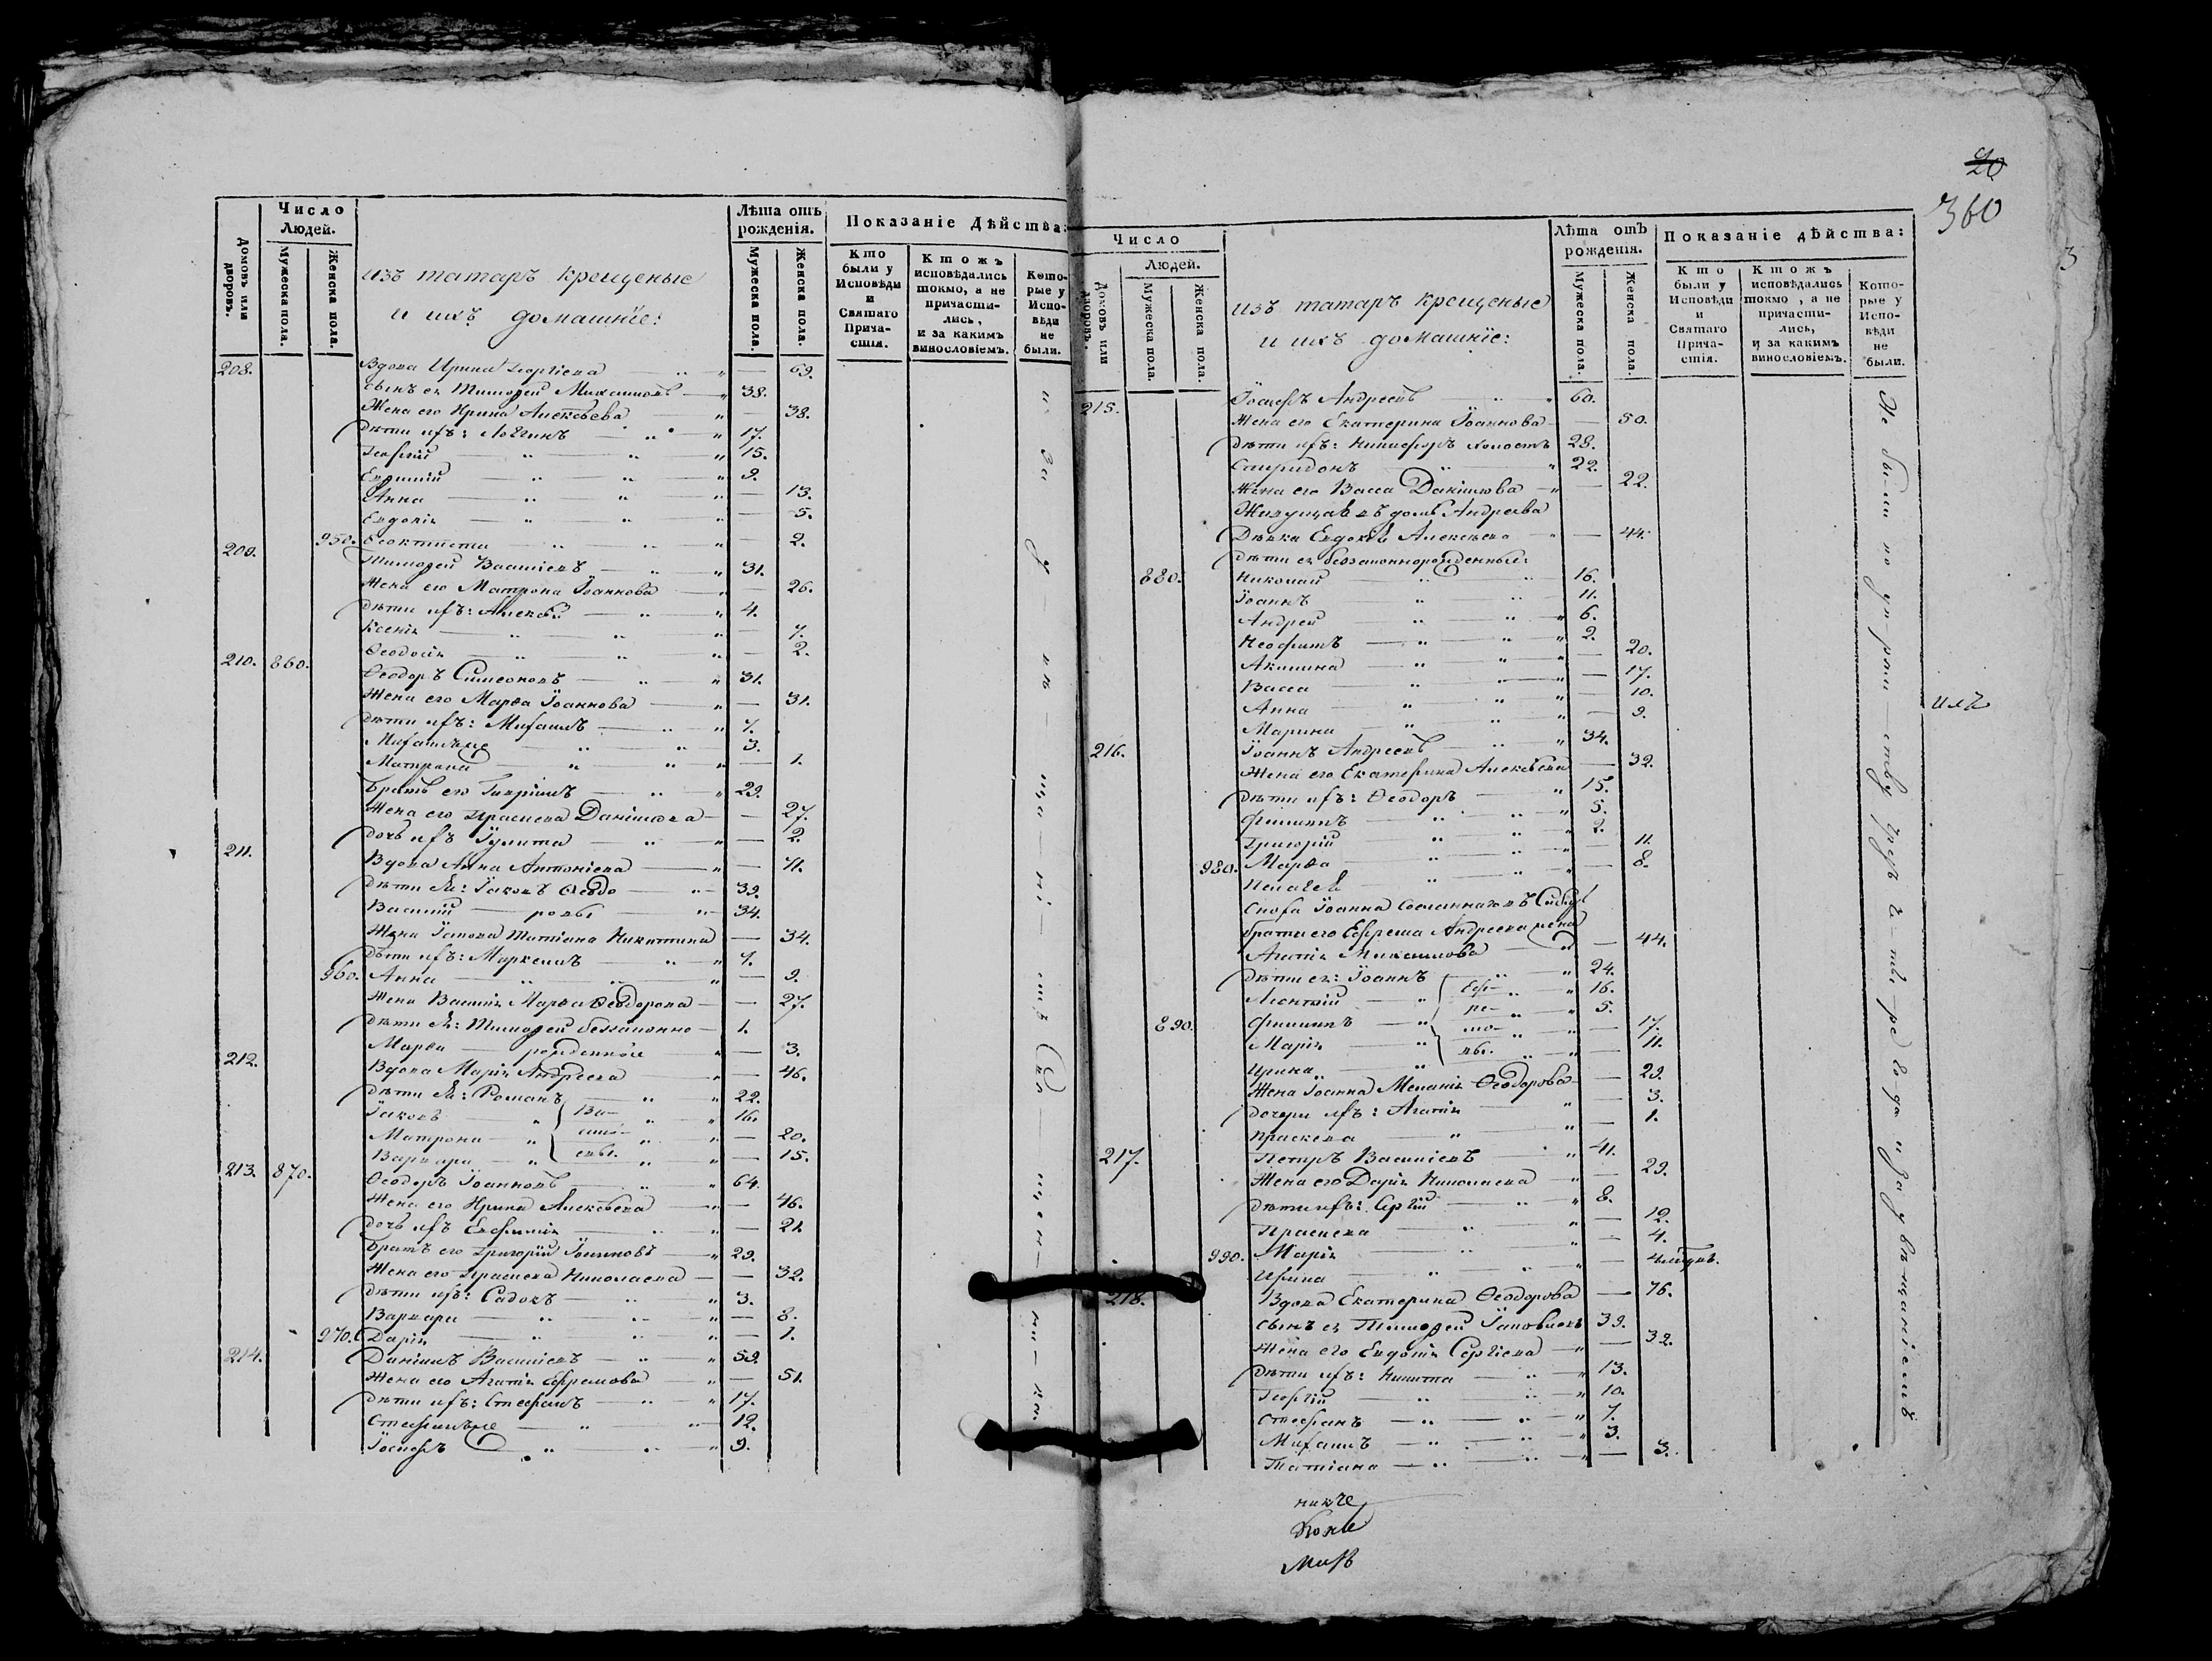 20
360
3
Домовъ или дворовъ.
Число Людей.
Мужеска пола.
Женска пола.
изъ татаръ крещеные
и ихъ домашніе:
Лѣта отъ рожденія.
Мужеска пола.
Женска пола.
Показаніе Дѣйства:
Кто были у Исповѣди и Святаго Причастія.
Ктожъ исповѣдались токмо, а не причастились, и за какимъ винословіемъ.
Которые у Исповѣди не были.
208. Вдова Ирина Георгіева — 69.
Сынъ ея Тимоѳей Михаиловъ 38.
Жена его Ирина Алексѣева — 38.
Дѣти ихъ: Логгинъ 17.
Георгій 15.
Евѳимій 9.
Анна — 13.
Евдокія — 5.
950. Ѳеоктиста — 2.
209. Тимоѳей Василіевъ 31.
Жена его Матрона Іоаннова — 26.
Дѣти ихъ: Алексѣй 4.
Ксенія — 7.
Ѳеодосія — 2.
210. 860. Ѳеодоръ Симеоновъ 31.
Жена его Марѳа Іоаннова — 31.
Дѣти ихъ: Михаилъ 7.
Михаилъ же 3.
Матрона — 1.
Братъ его Гавріилъ 29.
Жена его Праскева Даніилова — 27.
Дочь ихъ Іулита — 2.
211. Вдова Анна Антоніева — 71.
Дѣти ея: Іаковъ Ѳеодо- 39.
Василій — ровы 34.
Жена Іакова Татіана Никитина — 34.
Дѣти ихъ: Маркеллъ 7.
960. Анна — 9.
Жена Василія Марѳа Ѳеодорова — 27.
Дѣти ея: Тимоѳей беззаконно- 1.
Марѳа — рожденные — 3.
212. Вдова Марія Андреева — 46.
Дѣти ея: Романъ 22.
Іаковъ Ва- 16.
Матрона силі- — 20.
Варвара евы. — 15.
213. 870. Ѳеодоръ Іоанновъ 64.
Жена его Ирина Алексѣева — 46.
Дочь ихъ Евфимія — 21.
Братъ его Григорій Іоанновъ 29.
Жена его Праскева Николаева — 32.
Дѣти ихъ: Садокъ 3.
Варвара — 8.
970. Дарія — 1.
214. Даніилъ Василіевъ 59.
Жена его Агатія Ефремова — 51.
Дѣти ихъ: Стефанъ 17.
Стефанъ же 12.
Іосифъ 9.
Домовъ или дворовъ.
Число Людей.
Мужеска пола.
Женска пола.
изъ татаръ крещеные
и ихъ домашніе:
Лѣта отъ рожденія.
Мужеска пола.
Женска пола.
Показаніе дѣйства:
Кто были у Исповѣди и Святаго Причастія.
Ктожъ исповѣдались токмо, а не причастились, и за какимъ винословіемъ.
Которые у Исповѣди не были.
215. Іосифъ Андреевъ 60.
Жена его Екатерина Іоаннова — 50.
Дѣти ихъ: Никифоръ холостъ 28.
Спиридонъ 22.
Жена его Васса Даніилова — 22.
Живущая въ домѣ Андреева
Дѣвка Евдокія Алексѣева — 44.
Дѣти ея беззаконнорожденные:
880. Николай 16.
Іоаннъ 11.
Андрей 6.
Неофитъ 2.
Акилина — 20.
Васса — 17.
Анна — 10.
Марина — 9.
216. Іоаннъ Андреевъ 34.
Жена его Екатерина Алексѣева — 32.
Дѣти ихъ: Ѳеодоръ 15.
Филиппъ 5.
Григорій 2.
980. Марѳа — 11.
Пелагея — 8.
Сноха Іоанна Сосланнаго въ Сибирь
брата его Ефрема Андреева жена
Агатія Максимова — 44.
Дѣти ея: Іоаннъ 24.
Леонтій Еф- 16.
890. Филиппъ ре- 5.
Марія мо- — 17.
Ирина вы. — 11.
Жена Іоанна Меланія Ѳеодорова — 29.
Дочери ихъ: Агатія — 3.
Праскева — 1.
217. Петръ Василіевъ 41.
Жена его Дарія Николаева — 29.
Дѣти ихъ: Сергій 8.
Праскева — 12.
990. Марія — 4.
Ирина —
218. Вдова Екатерина Ѳеодорова — 76.
Сынъ ея Тимоѳей Іаковлевъ 39.
Жена его Евдокія Сергіева — 32.
Дѣти ихъ: Никита 13.
Георгій 10.
Стефанъ 7.
Михаилъ 3.
Татіана — 3.
Не были по уп-рям-ству чрезъ